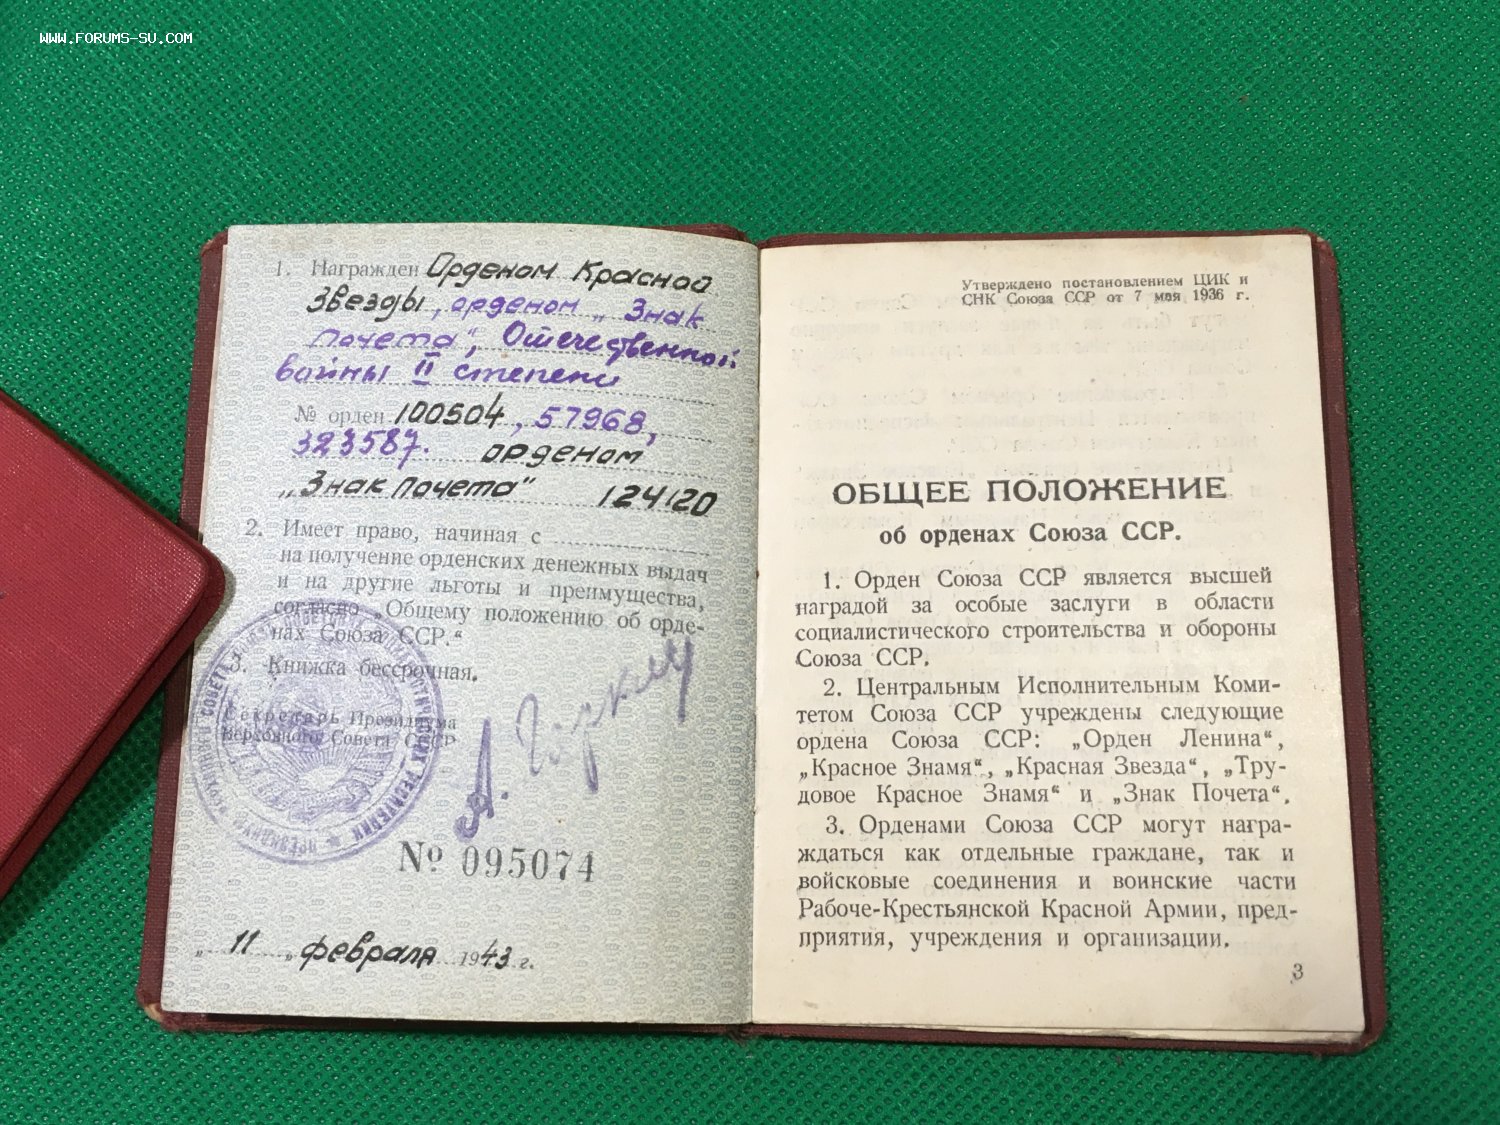 WWW.FORUMS-SU.COM
1. Награжден Орденом Красной
Звезды, орденом „Знак
Почета", Отечественной
войны II степени
№ орден 100504, 57968,
323587. орденом
„Знак Почета" 124120
2. Имеет право, начиная с
на получение орденских денежных выдач
и на другие льготы и преимущества,
согласно „Общему положению об орде-
нах Союза ССР.“
3. Книжка бессрочная.
Секретарь Президиума
Верховного Совета СССР
А. Горкин
№ 095074
„ 11 „ февраля 1943 г.
Утверждено постановлением ЦИК и
СНК Союза ССР от 7 мая 1936 г.
ОБЩЕЕ ПОЛОЖЕНИЕ
об орденах Союза ССР.
1. Орден Союза ССР является высшей
наградой за особые заслуги в области
социалистического строительства и обороны
Союза ССР.
2. Центральным Исполнительным Коми-
тетом Союза ССР учреждены следующие
ордена Союза ССР: „Орден Ленина“,
„Красное Знамя“, „Красная Звезда“, „Тру-
довое Красное Знамя“ и „Знак Почета“.
3. Орденами Союза ССР могут награ-
ждаться как отдельные граждане, так и
войсковые соединения и воинские части
Рабоче-Крестьянской Красной Армии, пред-
приятия, учреждения и организации.
3